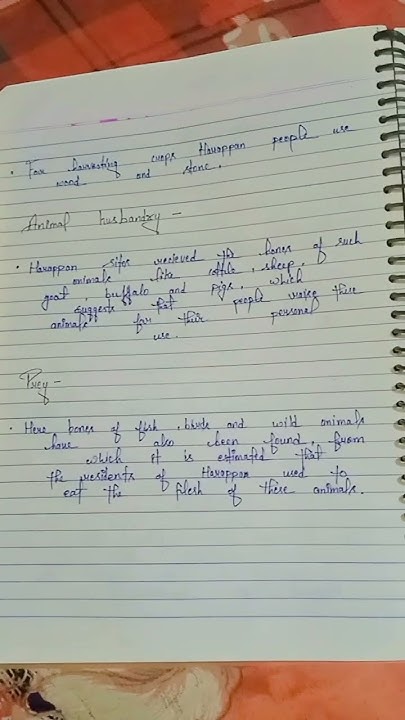 • For harvesting crops Harappan people use
wood and stone.
Animal husbandry -
• Harappan sites recieved the bones of such
animals like cattle, sheep,
goat, buffalo and pigs, which
suggests that people raise these
animals for their personal
use.
Prey -
• Here bones of fish, birds and wild animals
have also been found, from
which it is estimated that
the residents of Harappan used to
eat the flesh of these animals.